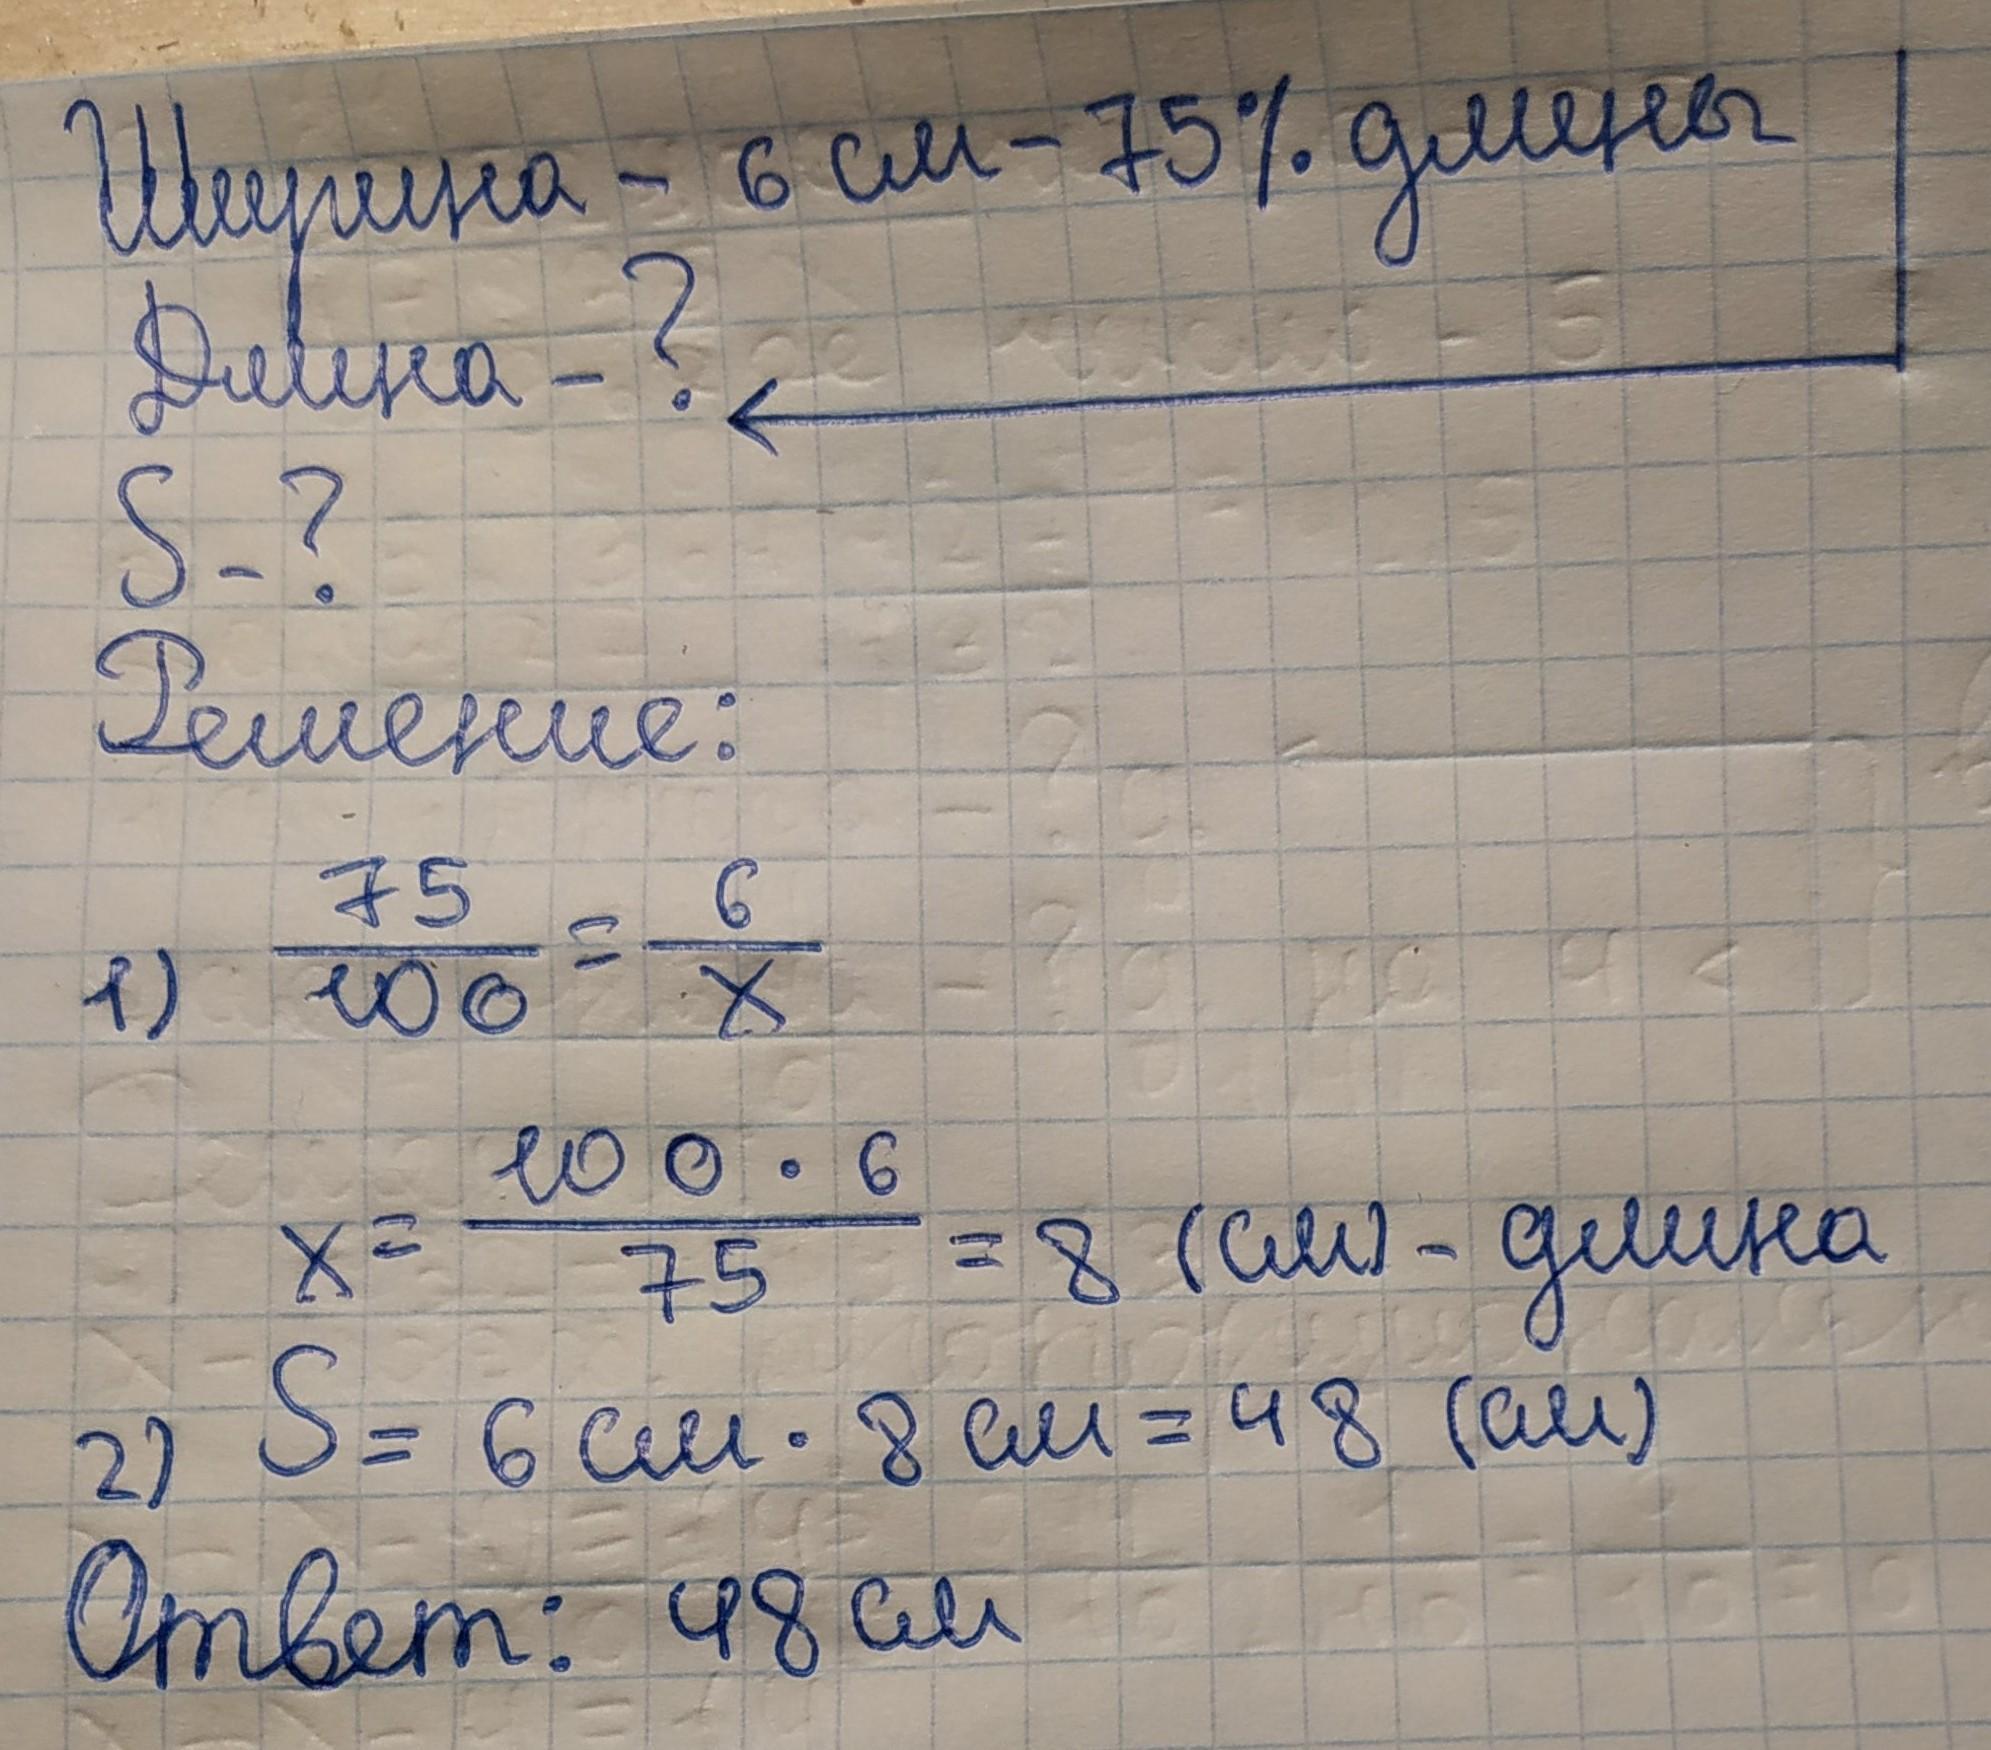 Ширина - 6 см - 75% длины
Длина - ?
S - ?
Решение:
1) 75/100 = 6/x
x = 100 · 6/75 = 8 (см) - длина
2) S = 6 см · 8 см = 48 (см)
Ответ: 48 см